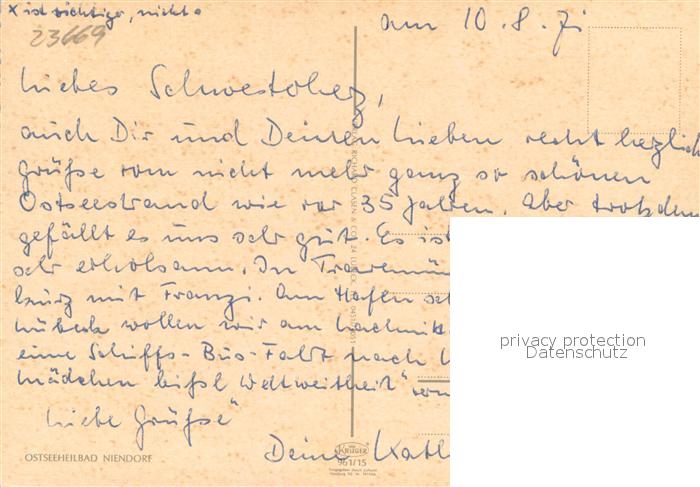 x ist richtiger, nicht o
23669
am 10.8.71
Liebes Schwesterherz,
auch Dir und Deinen Lieben recht herzlich
Grüße vom nicht mehr ganz so schönen
Ostseestrand wie vor 35 Jahren. Aber trotzdem
gefällt es uns sehr gut. Es ist
sehr erholsam. In Travemün
kurz mit Franzi. Am Hafen
Lübeck wollen wir am Nachmitt
eine Schiffs-Bus-Fahrt nach
Mädchen bißl Weltweitheit"
Liebe Grüße"
Deine Kath
privacy protection
Datenschutz
OSTSEEHEILBAD NIENDORF
KRÜGER
961/15